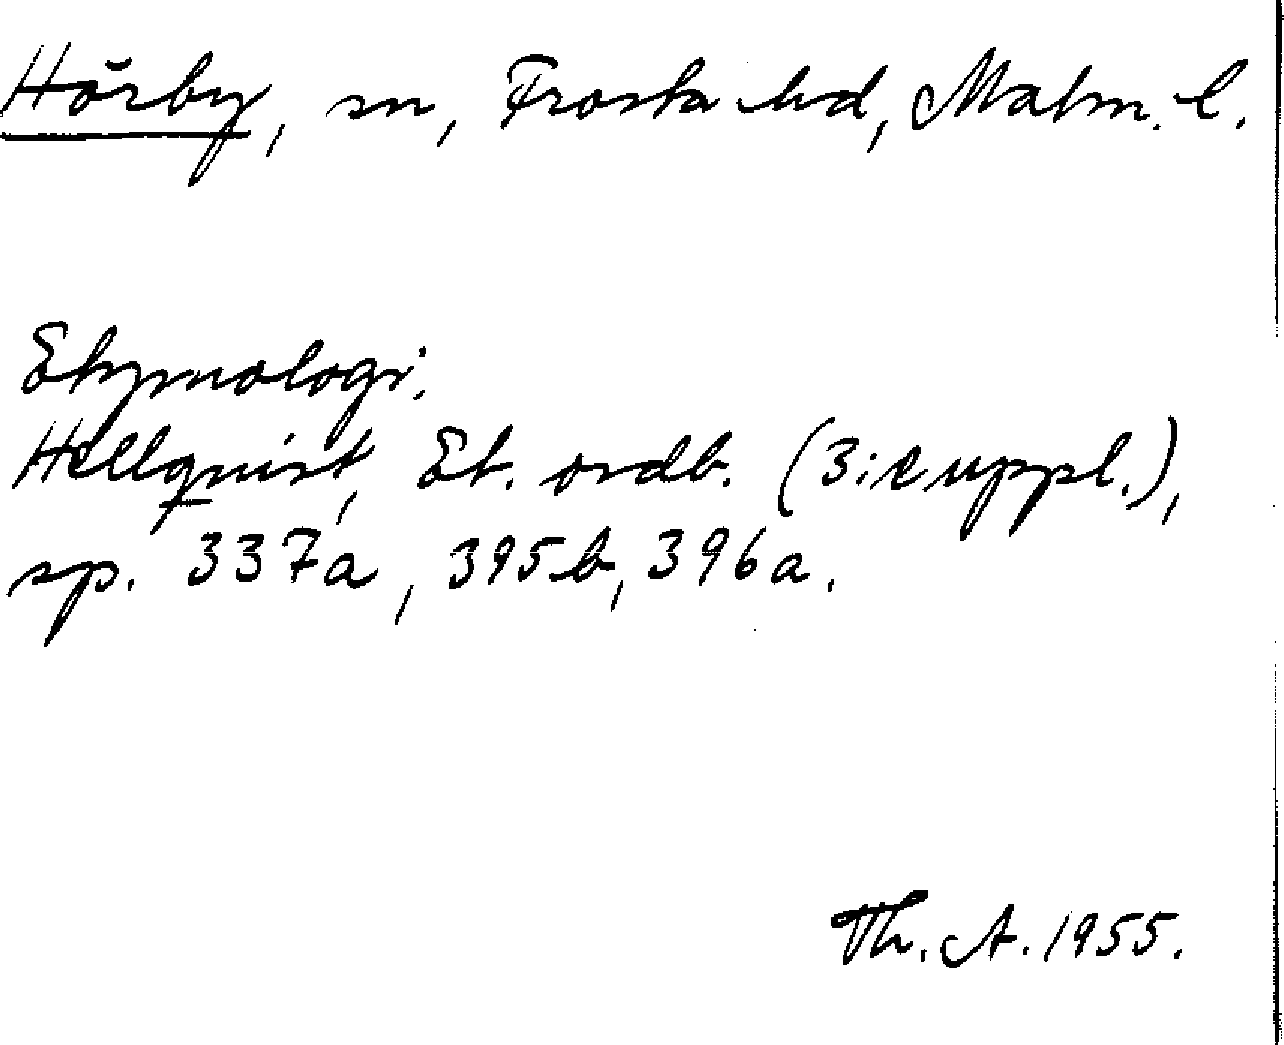 Hörby, sn, Frosta hd, Malm. l.
Etymologi.
Hellquist, Et. ordb. (3:e uppl.),
sp. 337a, 395b, 396a.
Th. A. 1955.